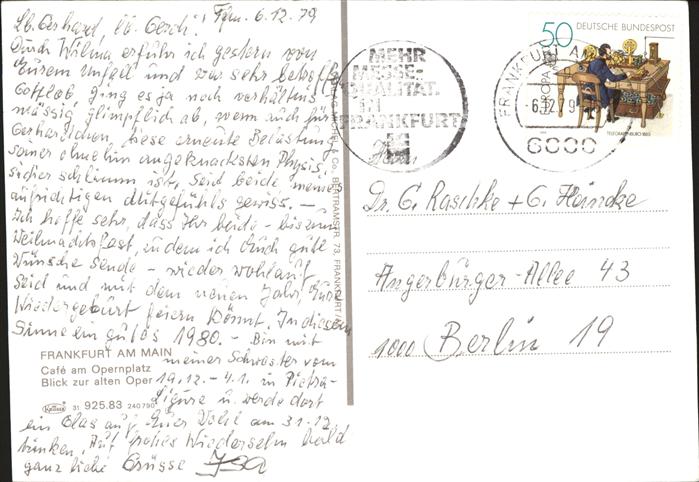 Lb. Gerhard, lb. Gerdi! Ffm. 6.12.79
Durch Wilma erfuhr ich gestern von
Eurem Unfall und war sehr betroffen.
Gottlob, ging es ja noch verhältnis-
mässig glimpflich ab, wenn auch für
Gerhardchen diese erneute Belastung
seiner ohnehin angeknacksten Physis,
sicher schlimm ist. Seid beide meines
aufrichtigen Mitgefühls gewiss. —
Ich hoffe sehr, dass Ihr beide - bis zum
Weihnachtsfest, zu dem ich Euch gute
Wünsche sende - wieder wohlauf
seid und mit dem neuen Jahr, Eure
Wiedergeburt feiern könnt. In diesem
Sinne ein gutes 1980. - Bin mit
meiner Schwester vom
19.12. - 4.1. in Pietra-
Ligure u. werde dort
ein Glas auf Euer Wohl am 31.12.
trinken. Auf frohes Wiedersehn bald
ganz liebe Grüsse
FRANKFURT AM MAIN
Café am Opernplatz
Blick zur alten Oper
31 925.83 240790
& Co., BERTRAMSTR. 73, FRANKFURT/
MEHR
MESSE-
QUALITÄT.
IN
FRANKFURT
FRANKFURT A
-6.12.79
6000
50 DEUTSCHE BUNDESPOST
EUROPA
TELEFONENBUREAU 1863
Herrn
Dr. G. Raschke + G. Heincke
Angerburger-Allee 43
1000 Berlin 19